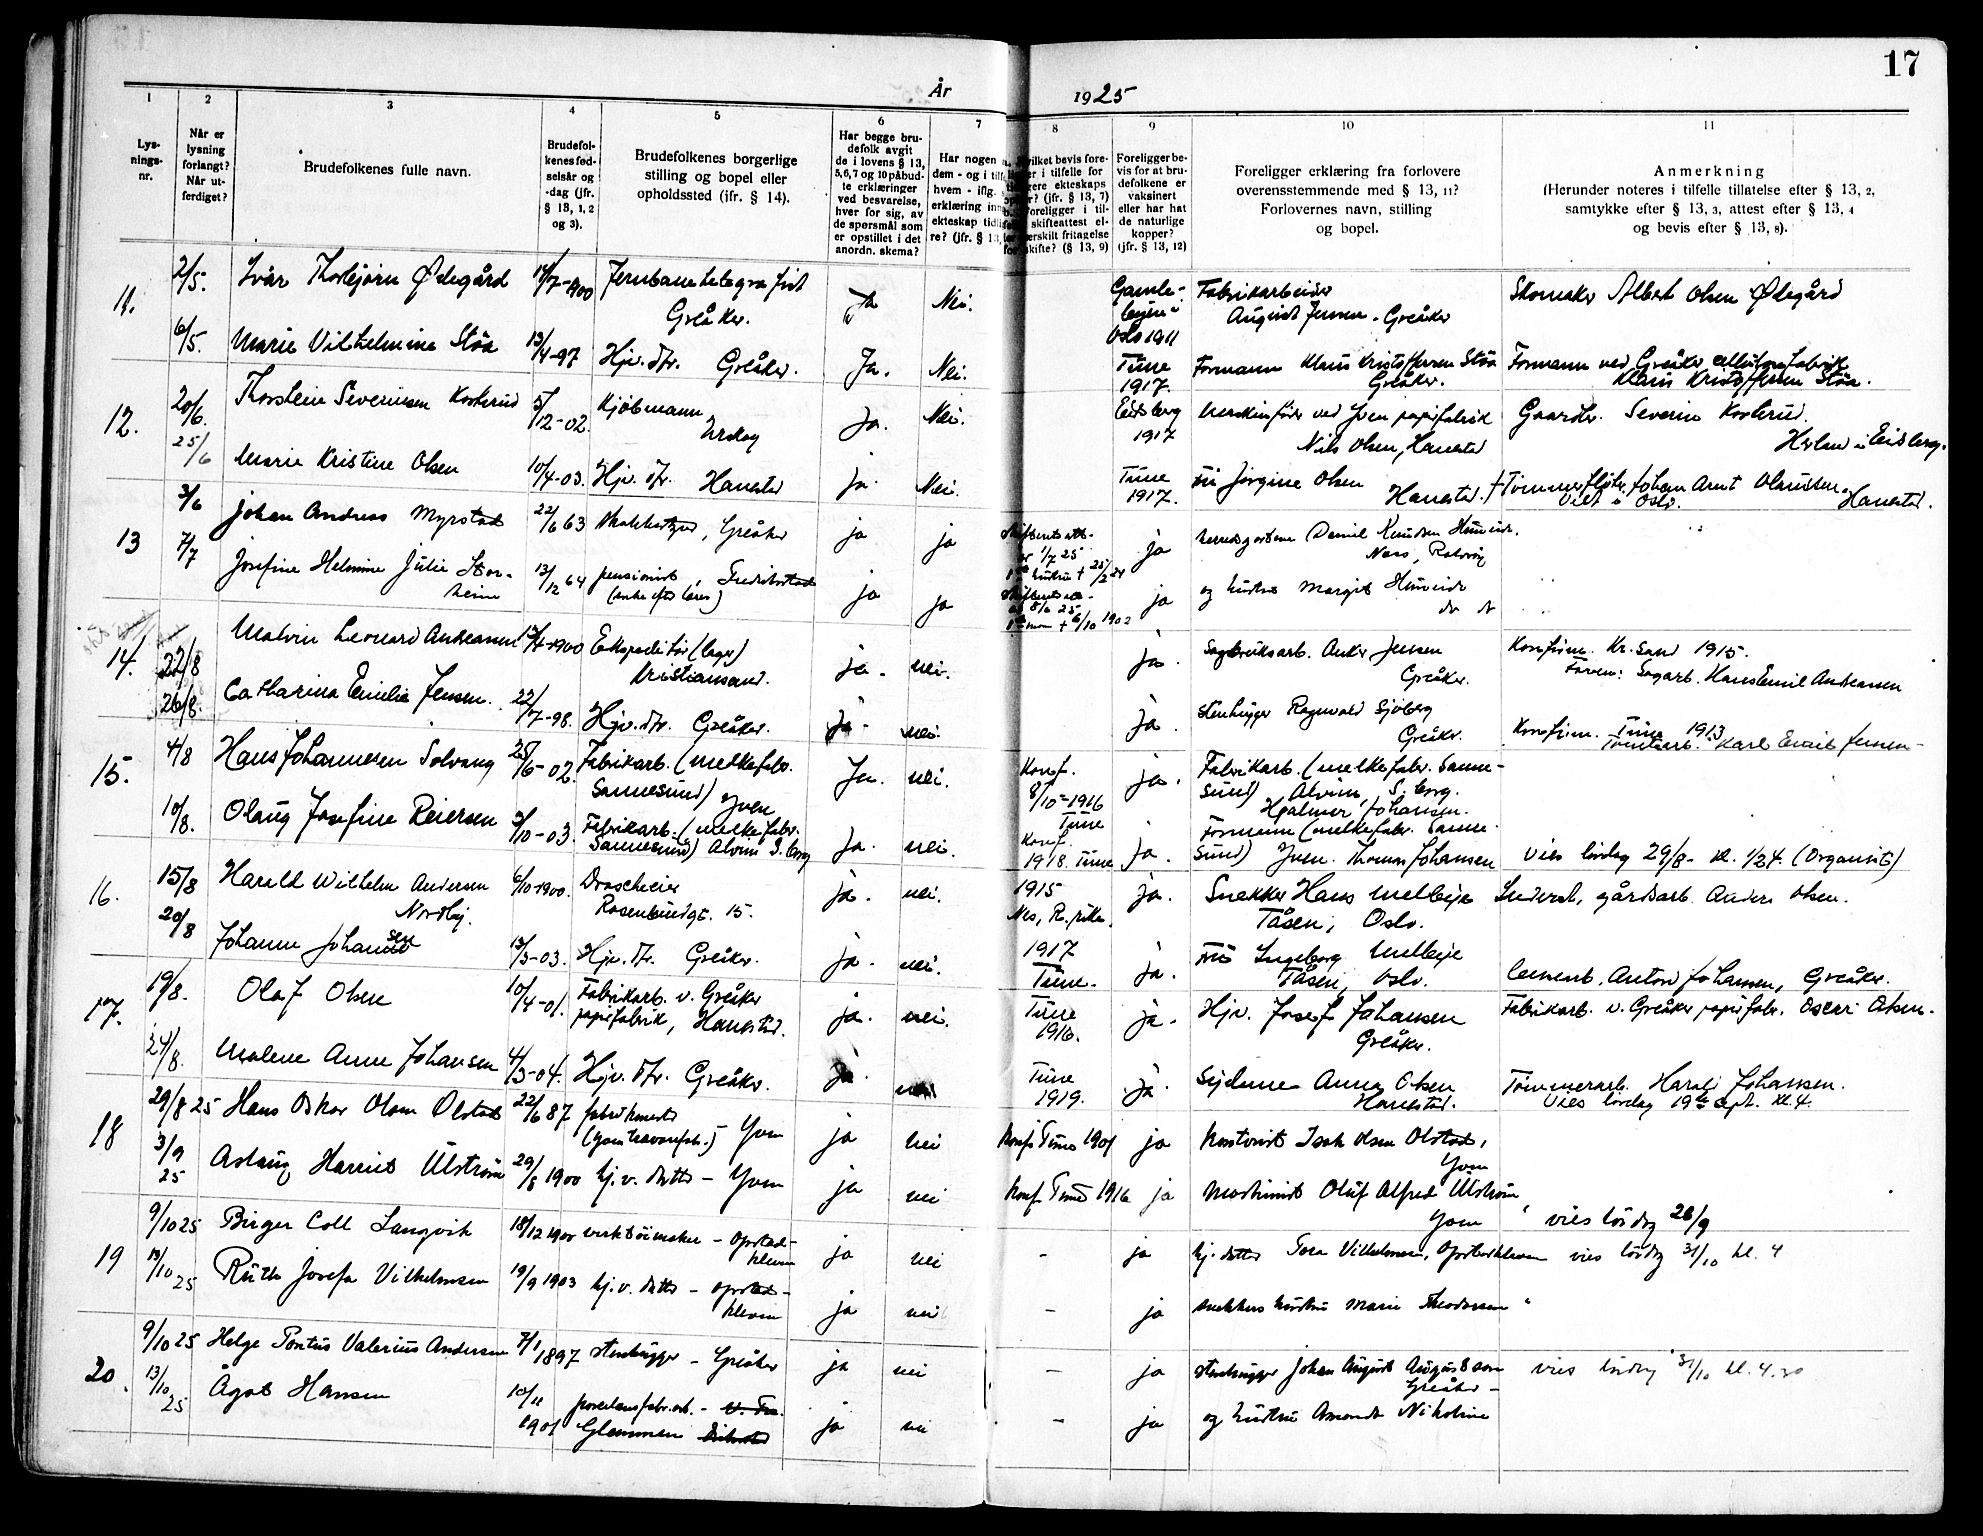 17
År 1925
1 2 3 4 5 6 7 8 9 10 11
Lys-
nings-
nr.
Når er
lysning
forlangt?
Når ut-
ferdiget?
Brudefolkenes fulle navn.
Brudefol-
kenes fød-
selsår og
-dag (jfr.
§ 13, 1, 2
og 3).
Brudefolkenes borgerlige
stilling og bopel eller
opholdssted (ifr. § 14).
Har begge bru-
defolk avgit
de i lovens § 13,
5,6,7 og 10 påbud-
te erklæringer
ved besvarelse,
hver for sig, av
de spørsmål som
er opstillet i det
anordn. skema?
Har nogen
dem - og i tilf
hvem - iflg.
erklæring inn
ekteskap tidli
re? (jfr. § 13,
vilket bevis fore-
er i tilfelle for
gere ekteskaps
r? (jfr. § 13, 7)
foreligger i til-
skifteattest el-
ærskilt fritagelse
skifte? (§ 13, 9)
Foreligger be-
vis for at bru-
defolkene er
vaksinert
eller har hat
de naturlige
kopper?
(jfr. § 13, 12)
Foreligger erklæring fra forlovere
overensstemmende med § 13, 11?
Forlovernes navn, stilling
og bopel.
Anmerkning
(Herunder noteres i tilfelle tillatelse efter § 13, 2,
samtykke efter § 13, 3, attest efter § 13, 4
og bevis efter § 13, 8).
11. 2/5. Ivar Thorbjørn Ødegård 14/7-1900 Jernbanetelegrafist
Greåker. Ja Nei. Gamle-
Oslo 1911 Fabrikarbeider
August Jensen. Greåker Skomaker Albert Olsen Ødegård
6/5. Marie Vilhelmine Stöa 13/4-97 Hjv. dtr. Greåker. Ja. Nei. Tune
1917. Formann Klaus Kristoffersen Stöa
Greåker. Formann ved Greåker cellulosefabrik
Klaus Kristoffersen Stöa.
12. 20/6. Thorstein Severinsen Kosterud 5/12-02. Kjöbmann
Ja. Nei. Eidsberg
1917 ved Yven papirfabrik
Nils Olsen, Hanestad Gaardbr. Severin Kosterud.
Eidsberg.
25/6 Marie Kristine Olsen 10/4-03. Hjv. dtr. Hanestad ja. Nei. Tune
1917. Fru Jörgine Olsen
Hanestad. Johan Arnt
Viet i Oslo. Hanestad.
13 3/6 Johan Andreas Myrstad 22/6 63 Greåker ja ja
1/7 25
25/2 24 ja Daniel Knudsen
Nes,
7/7 Josefine Helmine Julie Stor-
heim 13/12 64 pensionist, Fredrikstad
ja ja
8/6 25
6/10 1902 ja og hustru Margit
14. 22/8 Malvin Leonard Andreassen Ekspeditör (lager)
Kristiansand. ja. nei. ja. Sagbruksarb. Anker Jensen
Greåker. Konfirm. Kr. Sand 1915.
Faren: Sagarb. Hans Emil Andreassen
26/8. Catharina Emilie Jensen. 22/7-98. Hjv. dtr. Greåker. ja. nei. ja. Stenhugger Ragnvald Sjöberg
Greåker. Konfirm. Tune 1913
Karl Emil Jensen
15. 4/8 Hans Johannesen Solvang 25/6-02. Fabrikarb. (melkefabr.
Sannesund) Yven Ja. nei. Konf.
8/10-1916
Tune ja. Fabrikarb. (melkefabr. Sanne-
sund) Alvim, S. borg.
Hjalmar Johansen.
10/8. Olaug Josefine Reiersen 2/10-03. Fabrikarb. (melkefabr.
Sannesund) Alvim S. borg Ja. nei. Konf.
1918. Tune ja. Formann (melkefabr. Sanne-
sund) Yven. Thomas Johansen Vies lördag 29/8- kl. 1/2 4. (Organist)
16. 15/8 Harald Wilhelm Andersen
Nordby. 6/10-1900.
15. ja. nei. 1915
Nes, ja. Snekker Hans Melbeye
Tåsen, Oslo. gårdsarb. Anders Olsen.
20/8 Johanne Johansen 13/3-03. Hjv. dtr. Greåker. ja. nei. 1917
Tune. ja. Fru Ingeborg Melbeye
Tåsen, Oslo. Anton Johansen, Greåker.
17. 19/8. Olaf Olsen 10/4-01. Fabrikarb. v. Greåker
papirfabrik, Hanestad. ja. nei. Tune
1916. ja. Hjv. Josef Johansen
Greåker. Fabrikarb. v. Greåker papirfabr. Oscar Olsen.
24/8. Malene Anne Johansen 4/3-04. Hjv. dtr. Greåker. ja. nei Tune
1919. ja. Syerske Anna Olsen
Hanestad. Tömmerarb. Harald Johansen.
Vies lördag 19de sept. kl. 4.
18 29/8 25 Hans Oskar Olsen Olstad 22/6 87
Yven ja nei Konf. Tune 1901 ja Kontorist Isak Olsen Olstad,
Yven
3/9
25 Aslaug Harriet Ulström 29/8 1900 hj.v. datter - Yven ja nei Konf. Tune 1916 ja Maskinist Oluf Alfred Ulström
Yven vies lördag 26/9
19 9/10 25 Birger Coll Langvik 18/12 1900 - Opstad-
kleven ja nei - ja hj. datter Tora Vilhelmsen, Opstadkleven vies lördag 31/10 kl. 4
13/10 25 Ruth Josefa Vilhelmsen 19/9 1903 hj.v. datter - Opstad-
kleven ja nei - ja snekkers hustru Marie Theodorsen "
20. 9/10 25 Helge Pontus Valerius Andersen 7/1 1897 stenhugger - Greåker ja nei - ja stenhugger Johan August Augustson
Greåker - vies lördag 31/10 kl. 4.30
13/10
25 Ågot Hansen 10/11
1901 porcelensfabr.arb.
Glemmen ja nei - ja og hustru Amanda Nikoline